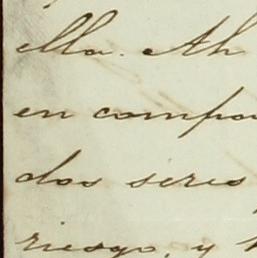 ella. Ah
en compa
dos seres
riesgo, y